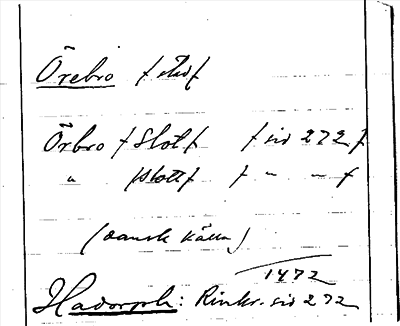 Örebro / stad /
Örbro / Slot / / sid 272 /
" /slott / / " " /
(dansk källa)
1472
Hadorph: Rimkr. sid 272